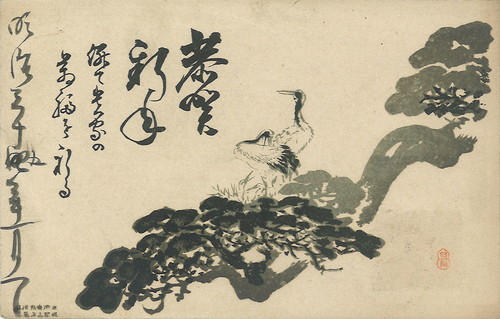 恭賀
新年
併て貴家の
萬福を祈る
明治三十四年一月一日